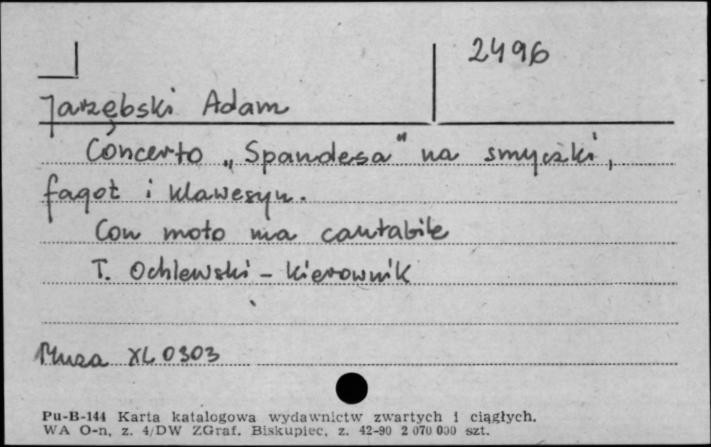 2496
Jarzębski Adam
Concerto „Spandesa" na smyczki,
fagot i klawesyn.
Con moto ma cantabile
T. Ochlewski – kierownik
Muza XL 0303
Pu-B-144 Karta katalogowa wydawnictw zwartych i ciągłych.
WA O-n, z. 4/DW ZGraf. Biskupiec, z. 42-90 2 070 000 szt.